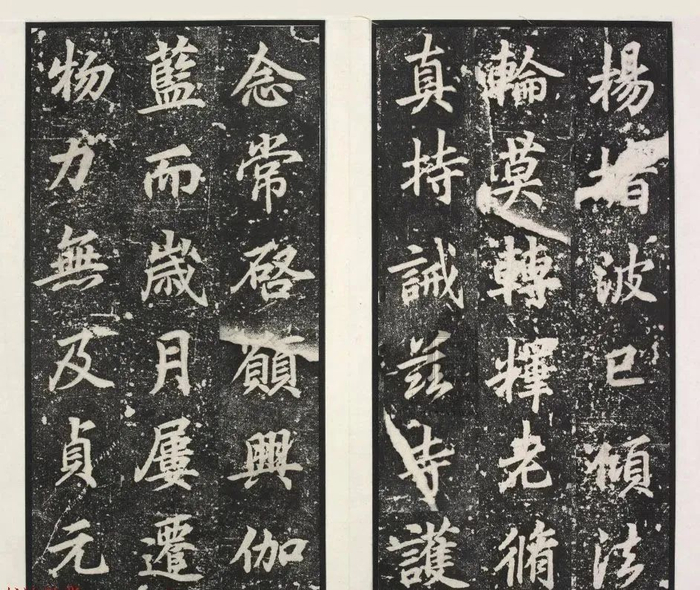 楊指波已傾法
輪莫轉禪老脩
真持誡茲寺護
念常啓願興伽
藍而歲月屢遷
物力無及貞元